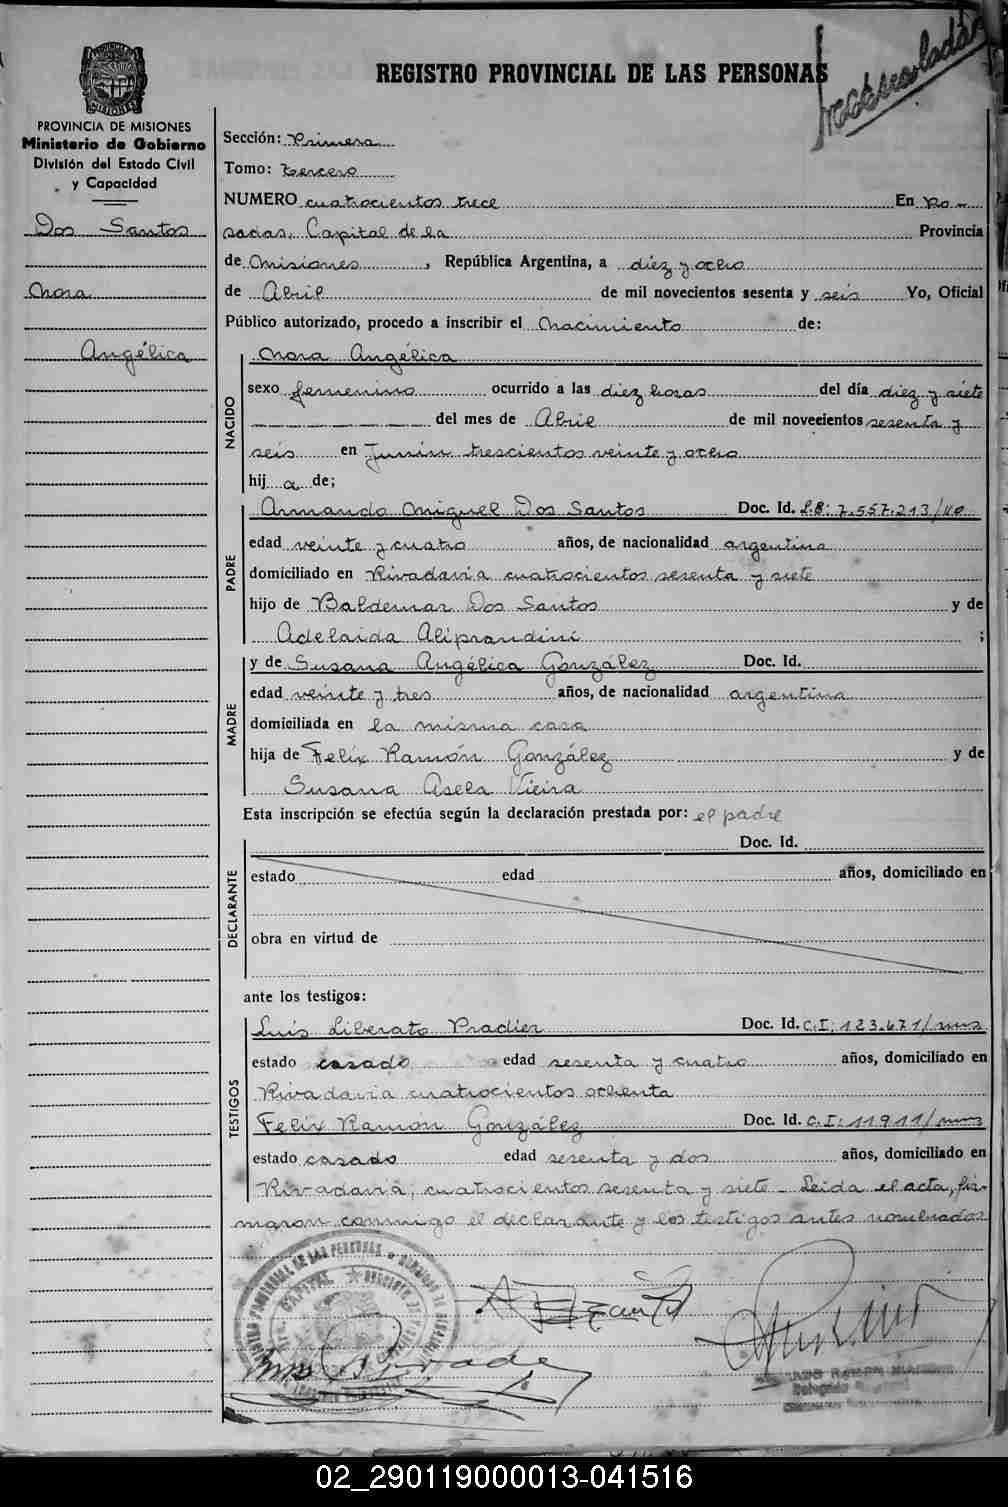 REGISTRO PROVINCIAL DE LAS PERSONAS
PROVINCIA DE MISIONES
Ministerio de Gobierno
División del Estado Civil
y Capacidad
Dos Santos
Nora
Angélica
Sección: Primera
Tomo: tercero
NUMERO cuatrocientos trece En Po-
sadas, Capital de la Provincia
de Misiones, República Argentina, a diez y ocho
de Abril de mil novecientos sesenta y seis Yo, Oficial
Público autorizado, procedo a inscribir el Nacimiento de:
NACIDO
Nora Angélica
sexo femenino ocurrido a las diez horas del día diez y siete
del mes de Abril de mil novecientos sesenta y
seis en Junín trescientos veinte y ocho
hij a de;
PADRE
Armando Miguel Dos Santos Doc. Id. L.E: 7.557.213/
edad veinte y cuatro años, de nacionalidad argentina
domiciliado en Rivadavia cuatrocientos sesenta y siete
hijo de Baldemar Dos Santos y de
Adelaida Aliprandini ;
MADRE
y de Susana Angélica González Doc. Id.
edad veinte y tres años, de nacionalidad argentina
domiciliada en la misma casa
hija de Felix Ramón González y de
Susana Asela Vieira
Esta inscripción se efectúa según la declaración prestada por: el padre
DECLARANTE
Doc. Id.
estado edad años, domiciliado en
obra en virtud de
ante los testigos:
TESTIGOS
Luis Liberato Pradier Doc. Id. C.I: 123.671/mns
estado casado edad sesenta y cuatro años, domiciliado en
Rivadavia cuatrocientos ochenta
Felix Ramon González Doc. Id. C.I: 11911/mns
estado casado edad sesenta y dos años, domiciliado en
Rivadavia, cuatrocientos sesenta y siete - Leida el acta, fir-
maron conmigo el declarante y los testigos antes nombrados
02_290119000013-041516